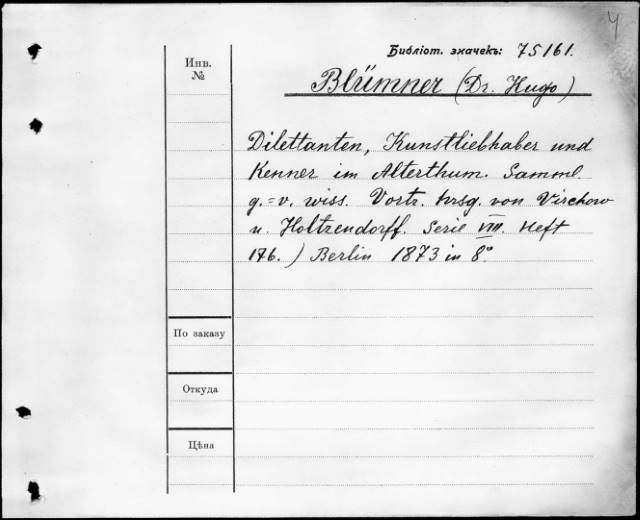 4
Библіот. значекъ: 75161.
Инв.
№
Blümner (Dr. Hugo)
Dilettanten, Kunstliebhaber und
Kenner im Alterthum. Samml.
g.=v. wiss. Vortr. hrsg. von Virchow
u. Holtzendorff. Serie VIII. Heft
176.) Berlin 1873 in 8°
По заказу
Откуда
Цѣна